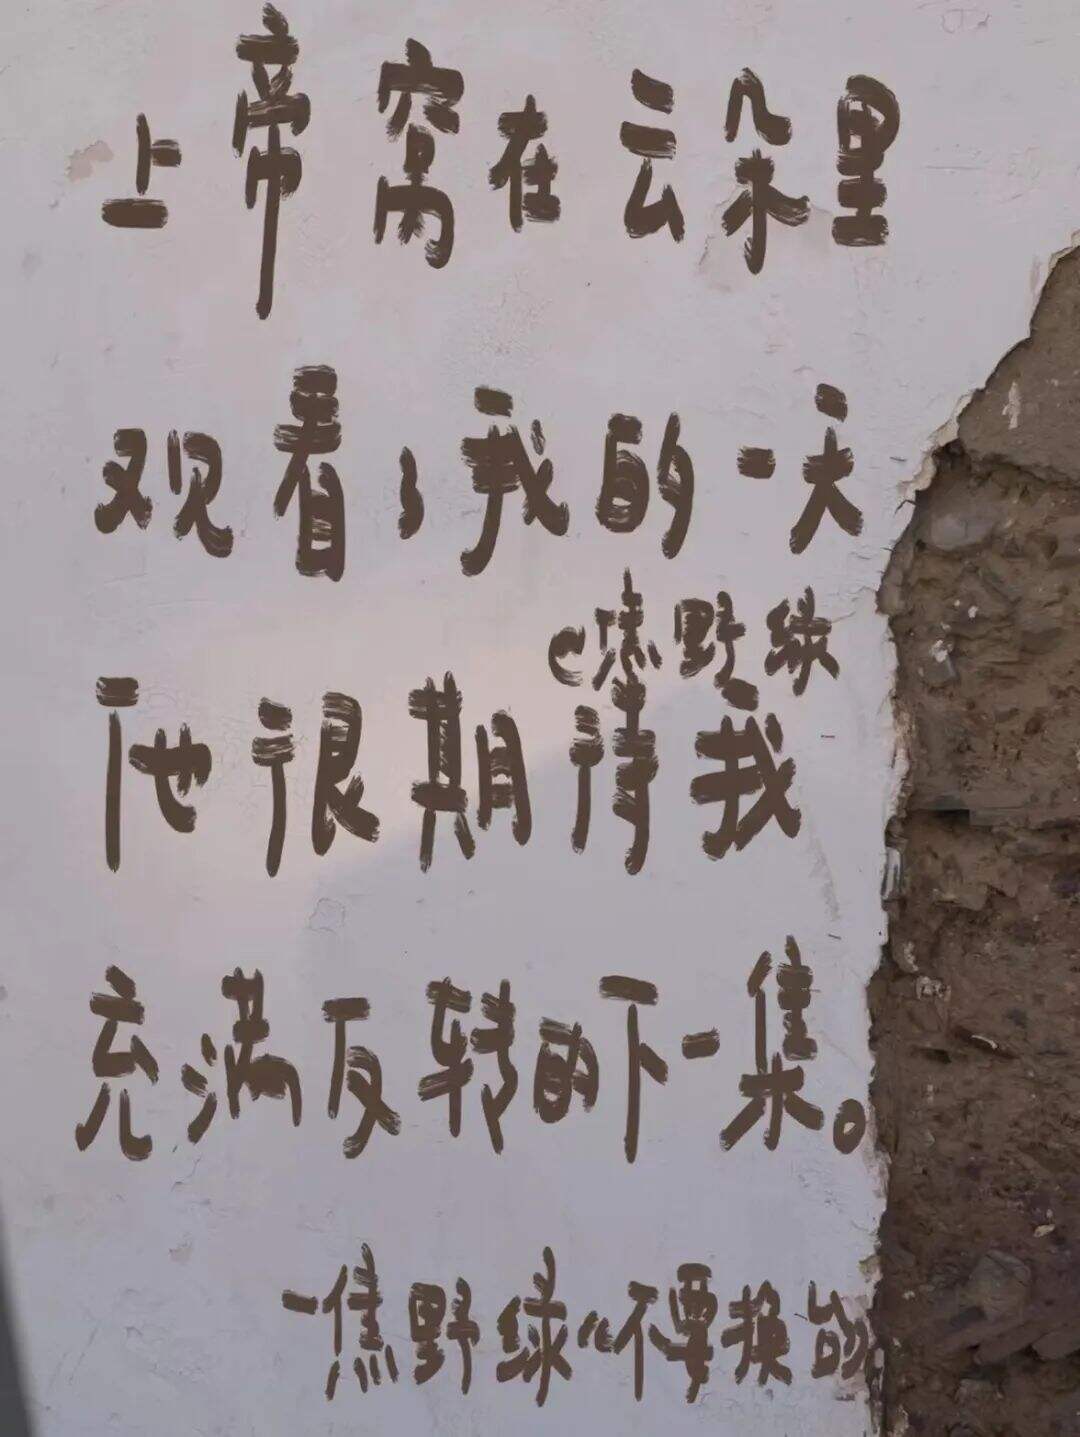 上帝窝在云朵里
观看了我的一天
@焦野绿
他很期待我
充满反转的下一集。
—焦野绿《不要换台》